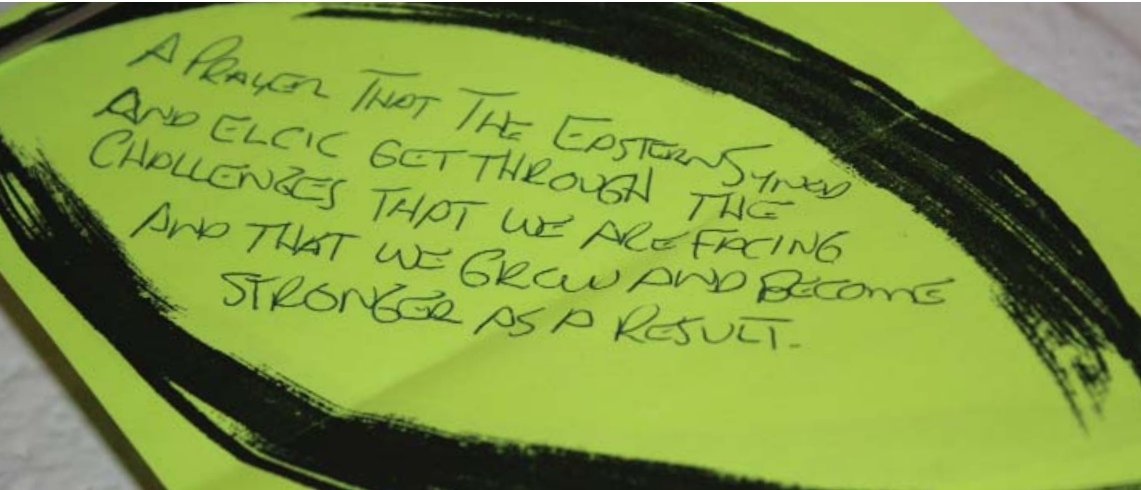 A PRAYER THAT THE EASTERN SYNOD
AND ELCIC GET THROUGH THE
CHALLENGES THAT WE ARE FACING
AND THAT WE GROW AND BECOME
STRONGER AS A RESULT.